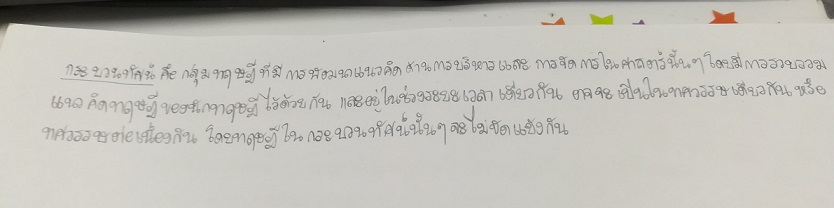 กระบวนทัศน์ คือ กลุ่มทฤษฎีที่มีการพัฒนาแนวคิดด้านการบริหารและการจัดการในศาสตร์นั้นๆ โดยมีการรวบรวม
แนวคิดทฤษฎีของนักทฤษฎีไว้ด้วยกัน และอยู่ในช่วงระยะเวลาเดียวกัน อาจจะเป็นในทศวรรษเดียวกันหรือ
ทศวรรษต่อเนื่องกัน โดยทฤษฎีในกระบวนทัศน์นั้นๆ จะไม่ขัดแย้งกัน